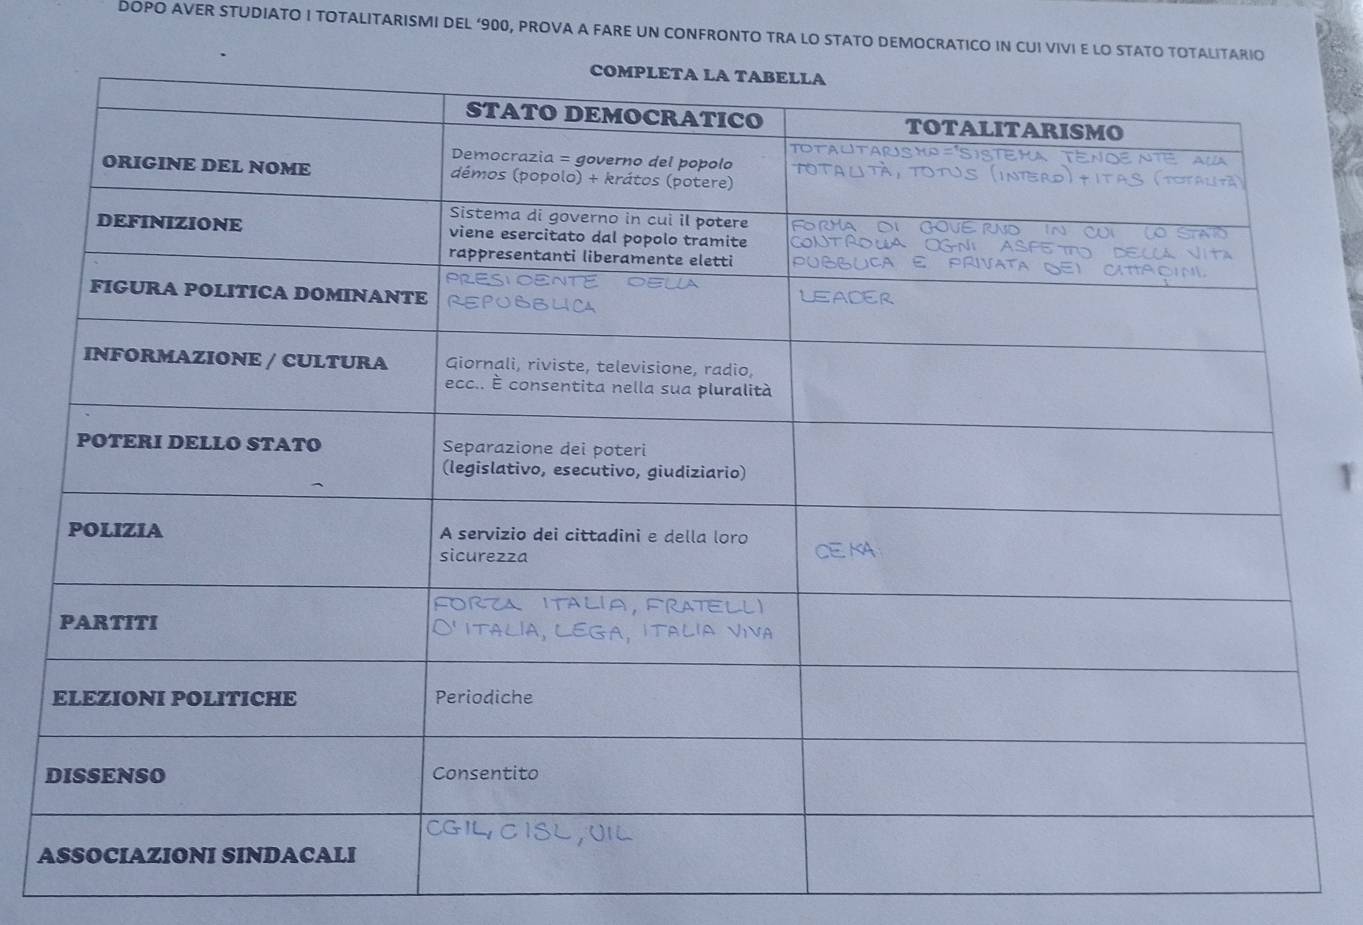 DOPO AVER STUDIATO I TOTALITARISMI DEL ‘900, PROVA A FARE UN CONFRONTO TRA LO STATO DEMOCRATICO IN CUI VIVI E LO STATO TOTALITARIO
COMPLETA LA TABELLA
STATO DEMOCRATICO
TOTALITARISMO
ORIGINE DEL NOME
Democrazia = governo del popolo
démos (popolo) + krátos (potere)
TOTALITARISMO="SISTEMA TENDENTE ALLA
TOTALITÀ, TOTUS (INTERO) + ITAS (TOTALITÀ)
DEFINIZIONE
Sistema di governo in cui il potere
viene esercitato dal popolo tramite
rappresentanti liberamente eletti
FORMA DI GOVERNO IN CUI LO STATO
CONTROLLA OGNI ASPETTO DELLA VITA
PUBBLICA E PRIVATA DEI CITTADINI
FIGURA POLITICA DOMINANTE
PRESIDENTE DELLA
REPUBBLICA
LEADER
INFORMAZIONE / CULTURA
Giornali, riviste, televisione, radio,
ecc.. È consentita nella sua pluralità
POTERI DELLO STATO
Separazione dei poteri
(legislativo, esecutivo, giudiziario)
POLIZIA
A servizio dei cittadini e della loro
sicurezza
CEKA
PARTITI
FORZA ITALIA, FRATELLI
D'ITALIA, LEGA, ITALIA VIVA
ELEZIONI POLITICHE
Periodiche
DISSENSO
Consentito
ASSOCIAZIONI SINDACALI
CGIL, CISL, UIL